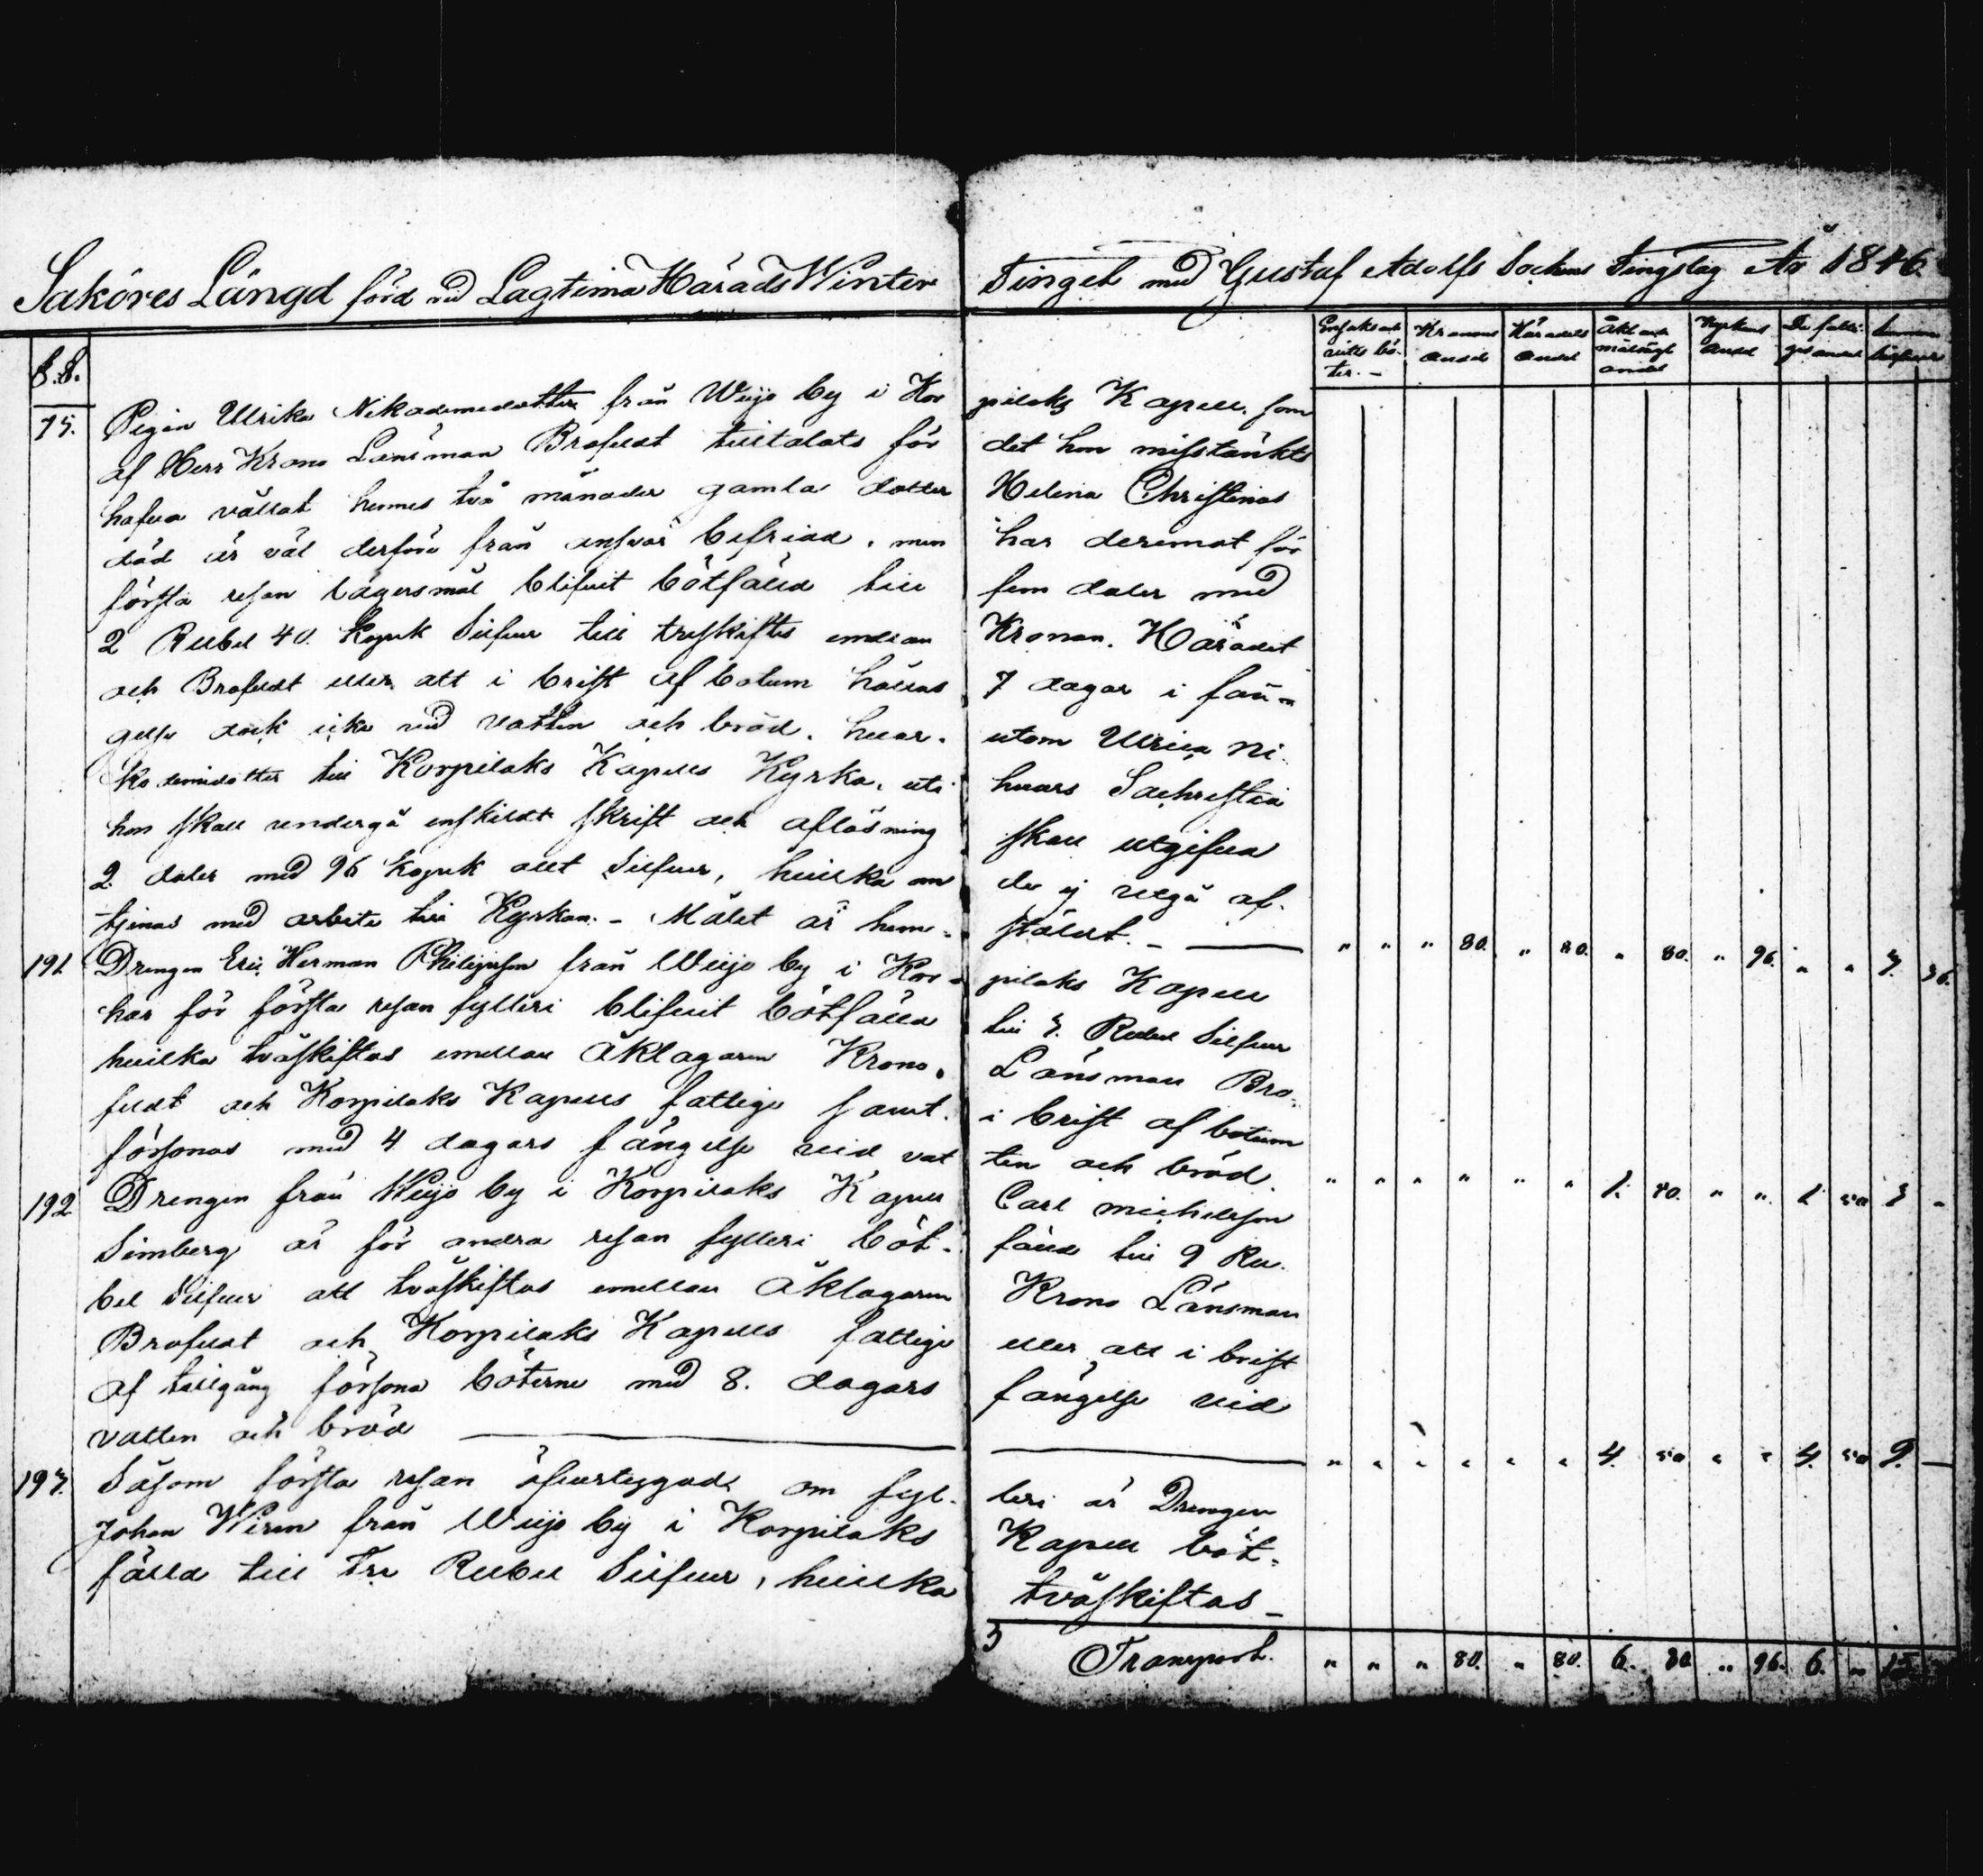 Saköres Längd förd vid Lagtima Härads Winter Tinget med Gustaf Adolfs Sockens Tingslag År 1846.
§.§. Ensaksrätts böter. Kronans andel Häradets andel Åklagare målsägt andel Kyrkans andel De fattiges andel Summa Silfver
75. Pigan Ulrika Nikodemidotter från Weijo by i Kor pilaks Kapell, som
af Herr Krono Länsman Brofeldt tilltalats för det hon misstänkts
hafva vållat hennes två månader gamla dotter Helena Christinas
död är väl derföre från ansvar befriad, men har deremot för
första resan lägersmål blifvit bötfälld till fem daler med
2 Rubel 40. Kopek Silfver till treskiftes emellan Kronan. Häradet
och Brofeldt eller att i brist af botum hållas 7 dagar i fän-
gelse dock icke vid vatten och bröd, hvar- utom Ulrica Ni-
kodemidotter till Korpilaks Kapells Kyrka, uti hvars Sachristia
hon skall undergå enskildt skrift och aflösning skall utgifva
2. daler med 96 kopek allt Silfver, hvilka om de ej utgå af-
tjenas med arbete till Kyrkan. - Målet är hem- stäldt. - " " " 80. " 80. " 80. " 96. " " 3. 36.
191 Drengen Eric Herman Philipson från Weijo by i Kor- pilaks Kapell
har för första resan fylleri blifvit bötfälld till 3. Rubel Silfver
hvilka tvåskiftas emellan Åklagaren Krono- Länsman Bro-
feldt och Korpilaks Kapells fattige samt i brist af botum
försonas med 4 dagars fängelse vid vat ten och bröd. " " " " " " 1. 50. " " 1 50 3 -
192 Drengen från Weijo by i Korpilaks Kapell Carl Michelson
Simberg är för andra resan fylleri böt- fälld till 9 Ru-
bel Silfver att tvåskiftas emellan Åklagaren Krono Länsman
Brofeldt och Korpilaks Kapells fattige eller att i brist
af tillgång försona böterne med 8. dagars fängelse vid
vatten och bröd " " " " " " 4. 50 " " 4. 50 9. -
193. Såsom första resan öfvertygad om fyl- leri är Drengen
Johan Wiren från Weijo by i Korpilaks Kapell böt-
fälld till Tre Rubel Silfver, hvilka tvåskiftas -
Transport. " " " 80. " 80. 6. 80 " 96. 6. " 15